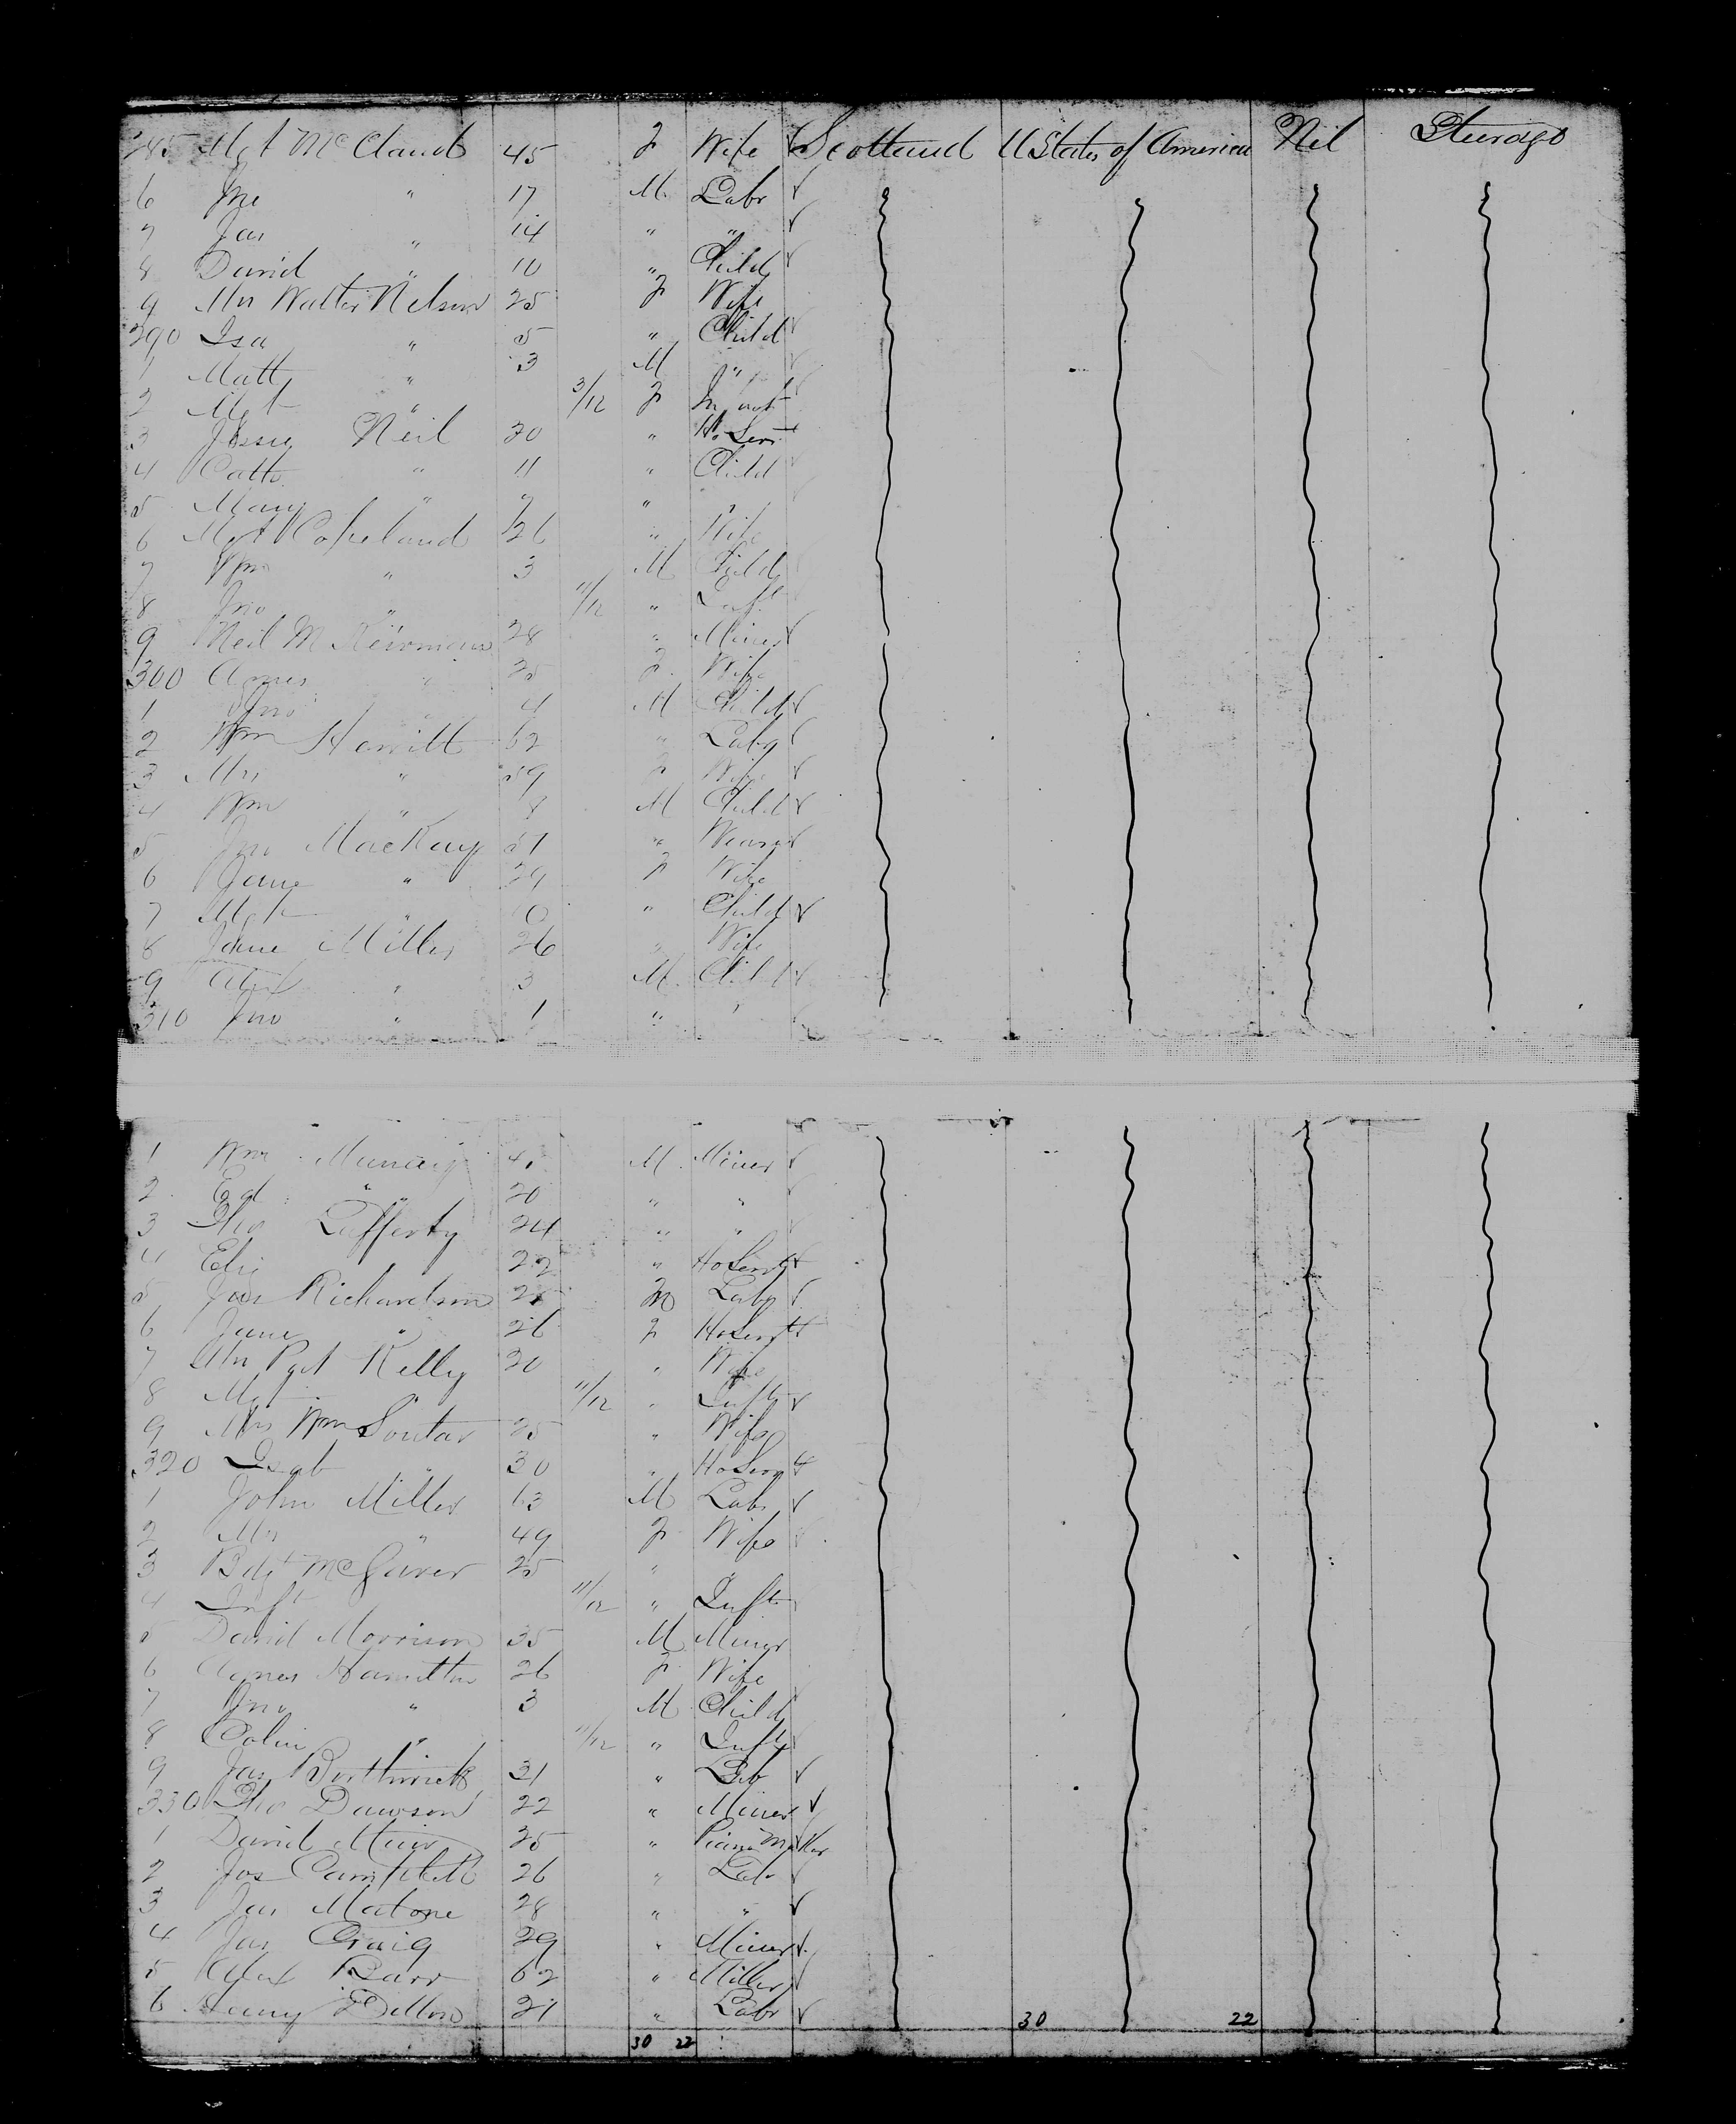 285 Mgt McClaud 45 F Wife Scotland U States of America Nil Steerage
6 Jno " 17 M. Labr
7 Jas " 14 " "
8 David " 10 " Child
9 Mrs Walter Nelson 25 F Wife
290 Isa " 5 " Child
1 Matt " 3 M "
2 Mgt " 3/12 F Infant
3 Jessie Neil 20 " Ho Serv
4 Cath " 11 " Child
5 Mary " "
6 Mgt Copeland 26 " Wife
7 Wm " 3 M Child
8 Jno " 11/12 " Inft
9 Neil M 28 " Miner
300 Agnes " 25 F. Wife
1 Jno " 4 M Child
2 Wm Hewitt 62 " Labr
3 Mrs " 59 F Wife
4 Wm " 8 M Child
5 Jno MacKay " Weaver
6 Jane " F Wife
7 Mgt " " Child
8 Jane Miller 26 " Wife
9 Alex " 3 M. Child
310 Jno " 1 " "
1 Wm M. Miner
2 Ed " 20 " "
3 Tho Lafferty 24 " "
4 Eliz 22 " Ho Servt
5 Jas Richardson 25 M Labr
6 Jane " 26 F Ho Servt
7 Mrs Pat Kelly 20 " Wife
8 Mgt " 11/12 " Inft
9 Mrs Wm Soutar 25 " Wife
320 Isab " 30 " Ho Serv
1 John Miller 63 M Labr
2 Mrs " 49 F Wife
3 Bdgt 25 " "
4 Inft 11/12 " Inft
5 David Morrison 35 M Miner
6 Agnes Hamilton 26 F Wife
7 Jno " 3 M Child
8 Colin " 11/12 " Inft
9 Jas Borthwick 31 " Lab
330 Tho Dawson 22 " Miner
1 David Muir 25 " Piano Maker
2 Jos Campbell 26 " Lab
3 Jas Malone 28 " "
4 Jas Craig 29 " Miner
5 Alex Barr 62 " Miller
6 Henry Dillon 21 " Labr 30 22
30 22